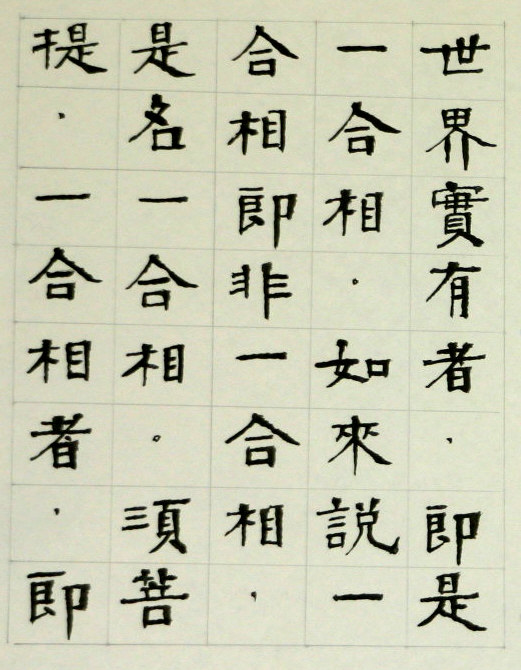 世界實有者．即是
一合相．如來說一
合相即非一合相．
是名一合相。須菩
提．一合相者．即